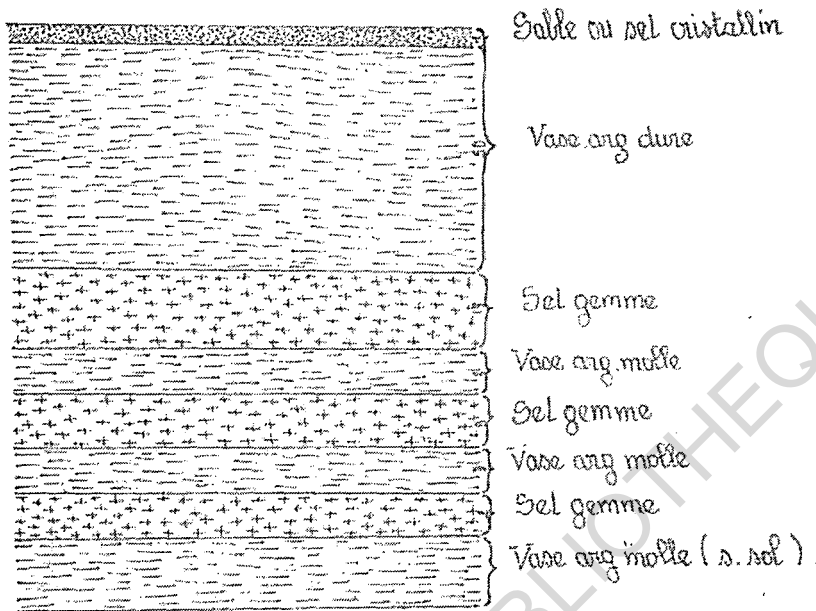 Sable ou sel cristallin
Vase arg dure
Sel gemme
Vase arg. molle
Sel gemme
Vase arg molle
Sel gemme
Vase arg molle (s. sol)
BLIOTHEQU